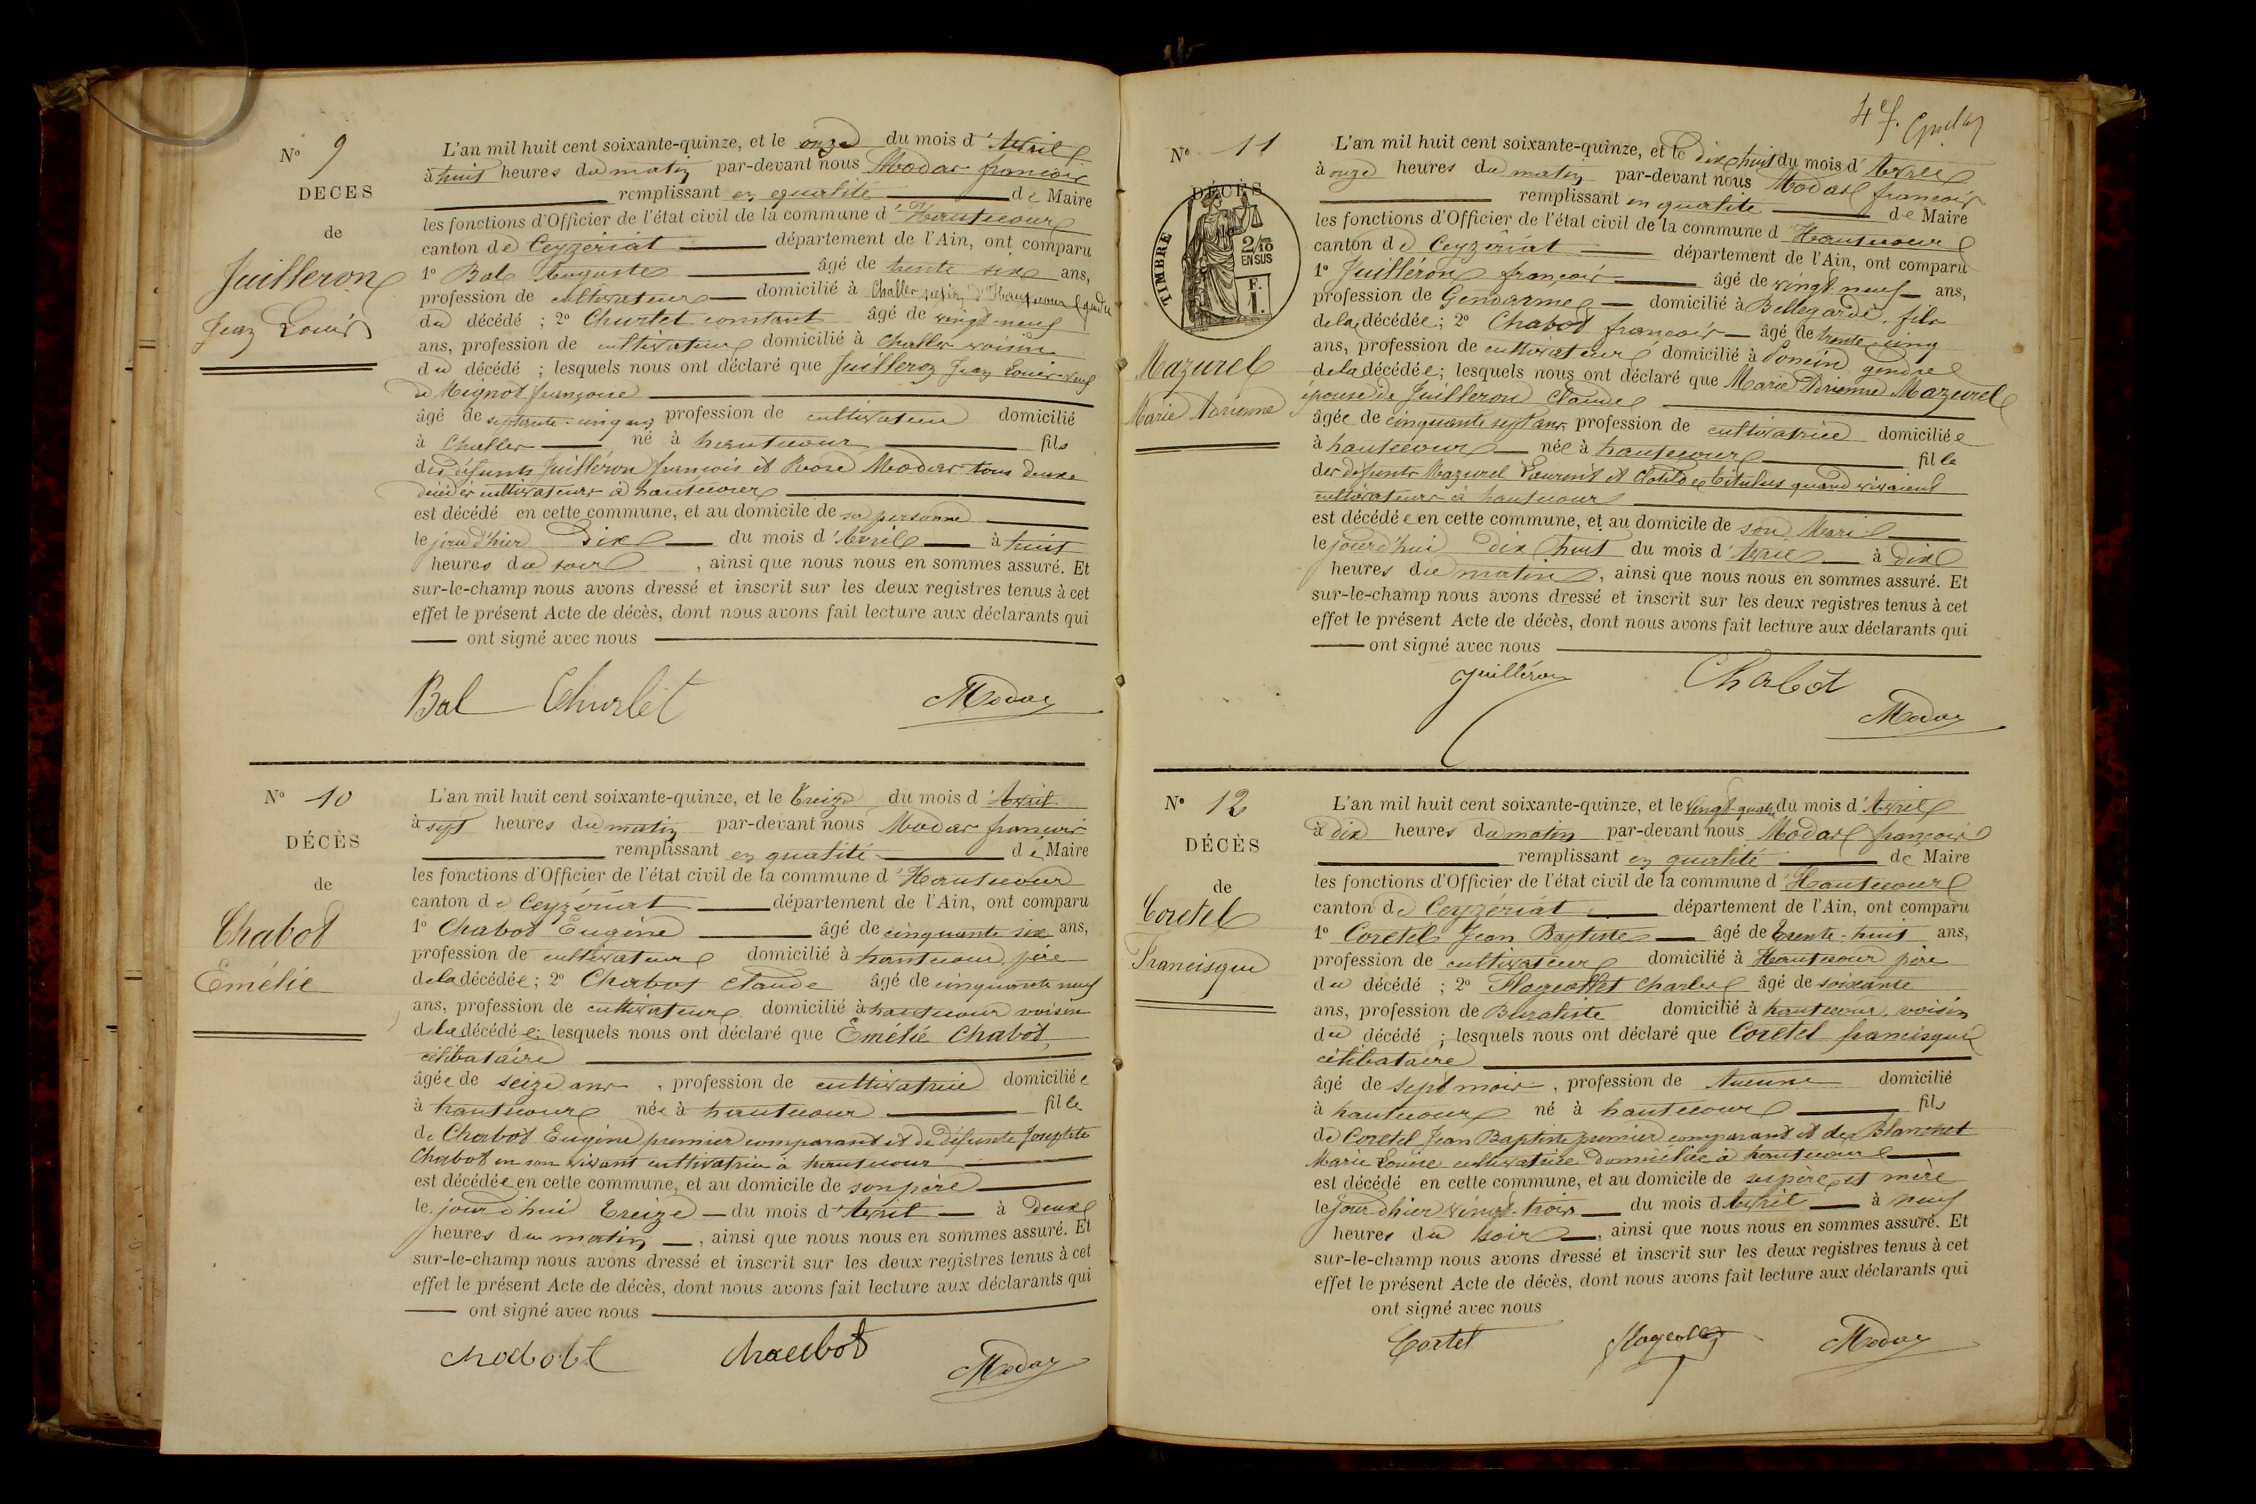 N° 9
DÉCÈS
de
Juilleron
Jean Louis
L'an mil huit cent soixante-quinze, et le onze du mois d'Avril
à huit heures du matin par-devant nous Modas françois
remplissant en qualité de Maire
les fonctions d'Officier de l'état civil de la commune d'Hautecour
canton de Ceyzériat département de l'Ain, ont comparu
1° Bal Auguste âgé de trente six ans,
profession de cultivateur domicilié à Challes d'Hautecour gendre
du décédé ; 2° Churlet constant âgé de vingt-neuf
ans, profession de cultivateur domicilié à Challes voisin
du décédé ; lesquels nous ont déclaré que Juilleron Jean Louis veuf
de Mignot françoise
âgé de septante-cinq ans profession de cultivateur domicilié
à Challes né à hautecour fils
des défunts Juilléron françois et Rose Modas tous deux
décédés cultivateurs à hautecour
est décédé en cette commune, et au domicile de sa personne
le jour d'hier Dix du mois d'Avril à huit
heures du soir , ainsi que nous nous en sommes assuré. Et
sur-le-champ nous avons dressé et inscrit sur les deux registres tenus à cet
effet le présent Acte de décès, dont nous avons fait lecture aux déclarants qui
ont signé avec nous
Bal Churlet Modas
N° 10
DÉCÈS
de
Chabot
Emélie
L'an mil huit cent soixante-quinze, et le treize du mois d'Avril
à sept heures du matin par-devant nous Modas françois
remplissant en qualité de Maire
les fonctions d'Officier de l'état civil de la commune d'Hautecour
canton de Ceyzériat département de l'Ain, ont comparu
1° Chabot Eugène âgé de cinquante six ans,
profession de cultivateur domicilié à hautecour père
de la décédée ; 2° Chabot claude âgé de cinquante neuf
ans, profession de cultivateur domicilié à hautecour voisin
de la décédée ; lesquels nous ont déclaré que Emélie Chabot,
célibataire
âgée de seize ans , profession de cultivatrice domiciliée
à hautecour née à hautecour fille
de Chabot Eugène premier comparant et de défunte Josephte
Chabot en son vivant cultivatrice à hautecour
est décédée en cette commune, et au domicile de son père
le jour d'hui treize du mois d'Avril à Deux
heures du matin , ainsi que nous nous en sommes assuré. Et
sur-le-champ nous avons dressé et inscrit sur les deux registres tenus à cet
effet le présent Acte de décès, dont nous avons fait lecture aux déclarants qui
ont signé avec nous
chabott chaebot Modas
4e f.
N° 11
DÉCÈS
TIMBRE
2/10
EN SUS
F.
1.
Mazurel
Marie Adrienne
L'an mil huit cent soixante-quinze, et le dix huit du mois d'Avril
à onze heures du matin par-devant nous Modas françois
remplissant en qualité de Maire
les fonctions d'Officier de l'état civil de la commune d Hautecour
canton de Ceyzériat département de l'Ain, ont comparu
1° Juilléron françois âgé de vingt neuf ans,
profession de Gendarme domicilié à Bellegarde, fils
de la décédée ; 2° Chabot françois âgé de trente cinq
ans, profession de cultivateur domicilié à Poncin gendre
de la décédée ; lesquels nous ont déclaré que Marie Adrienne Mazurel
épouse de Juilleron Claude
âgée de cinquante sept ans profession de cultivatrice domiciliée
à hautecour née à hautecour fille
des défunts Mazurel Laurent et Clotilde quand vivaient
cultivateurs à hautecour
est décédée en cette commune, et au domicile de son Mari
le jour d'hui dix huit du mois d'Avril à Dix
heures du matin , ainsi que nous nous en sommes assuré. Et
sur-le-champ nous avons dressé et inscrit sur les deux registres tenus à cet
effet le présent Acte de décès, dont nous avons fait lecture aux déclarants qui
ont signé avec nous
Juilléron Chabot
Modas
N° 12
DÉCÈS
de
Coretel
Francisque
L'an mil huit cent soixante-quinze, et le vingt-quatre du mois d'Avril
à dix heures du matin par-devant nous Modas françois
remplissant en qualité de Maire
les fonctions d'Officier de l'état civil de la commune d'Hautecour
canton de Ceyzériat département de l'Ain, ont comparu
1° Coretel Jean Baptiste âgé de trente-huit ans,
profession de cultivateur domicilié à Hautecour père
du décédé ; 2° Flageollet charles âgé de soixante
ans, profession de Buraliste domicilié à hautecour, voisin
du décédé ; lesquels nous ont déclaré que Coretel francisque
célibataire
âgé de sept mois , profession de Aucune domicilié
à hautecour né à hautecour fils
de Coretel Jean Baptiste premier comparant et de Blanchet
Marie Louise cultivatrice domiciliée à hautecour
est décédé en cette commune, et au domicile de ses père et mère
le jour d'hier vingt-trois du mois d'Avril à neuf
heures du soir , ainsi que nous nous en sommes assuré. Et
sur-le-champ nous avons dressé et inscrit sur les deux registres tenus à cet
effet le présent Acte de décès, dont nous avons fait lecture aux déclarants qui
ont signé avec nous
Cortel Flageollet Modas